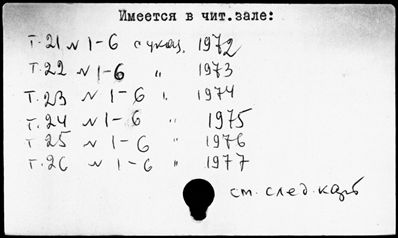 Имеется в чит.зале:
т.21 N 1-6 с указ. 1972
т.22 N 1-6 " 1973
т.23 N 1-6 " 1974
т.24 N 1-6 " 1975
т.25 N 1-6 " 1976
т.26 N 1-6 " 1977
см. след.